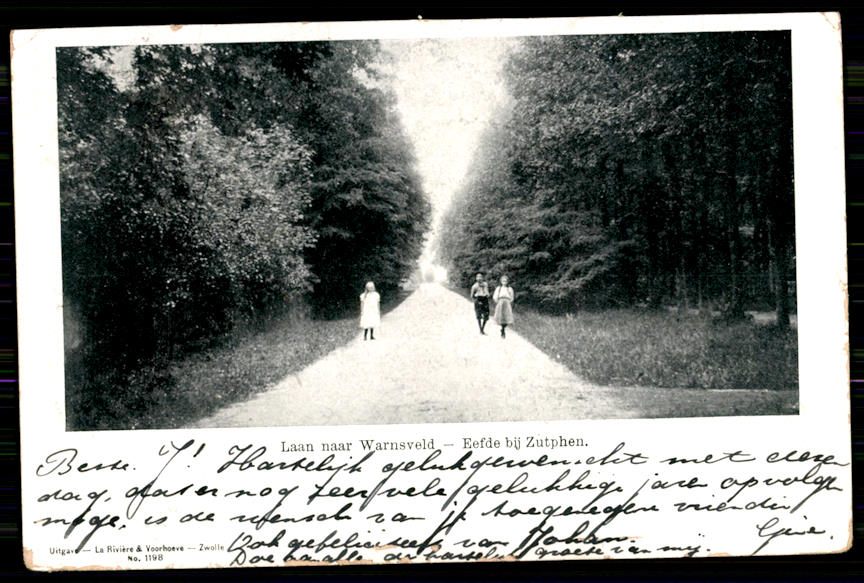 Laan naar Warnsveld — Eefde bij Zutphen.
Beste J! Hartelijk gelukgewenscht met dezen
dag, dat er nog zeer vele gelukkige jaren op volgen
moge, is de wensch van je toegenegen vriendin
Ook gefeliciteerd van Johan.
Doe aan alle de hartelijke groete van mij.
Uitgave — La Rivière & Voorhoeve — Zwolle
No. 1198